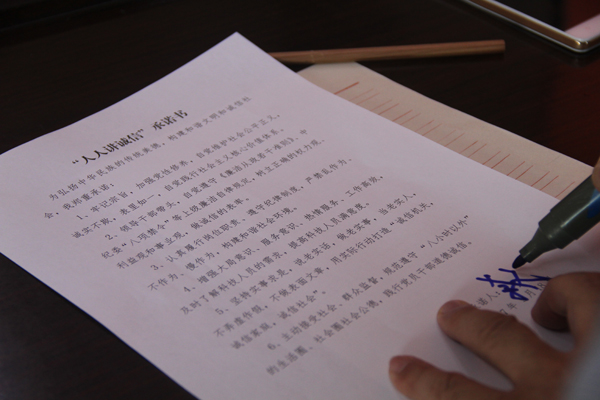 “人人讲诚信”承诺书
为弘扬中华民族的传统美德，构建和谐文明和诚信社
会，我郑重承诺：
1、牢记宗旨，加强党性修养，自觉维护社会公平正义，
诚实不欺，表里如一，自觉践行社会主义核心价值体系。
2、领导干部带头，自觉遵守《廉洁从政若干准则》、中
纪委“八项禁令”等上级廉洁自律规定，树立正确的权力观、
利益观和事业观，做诚信的表率。
3、认真履行岗位职责，遵守纪律制度，严禁乱作为、
不作为、慢作为，构建和谐社会环境。
4、增强大局意识、服务意识，热情服务，工作高效，
及时了解科技人员的需求，提高科技人员满意度。
5、坚持不事求是，说老实话，做老实事，当老实人，
不弄虚作假，不做表面文章，用实际行动打造“诚信机关，
诚信家庭，诚信社会”。
6、主动接受社会、群众监督，规范遵守“八小时以外”
的生活圈、社会圈社会公德，践行党员干部道德诚信。
诺人：
年 月